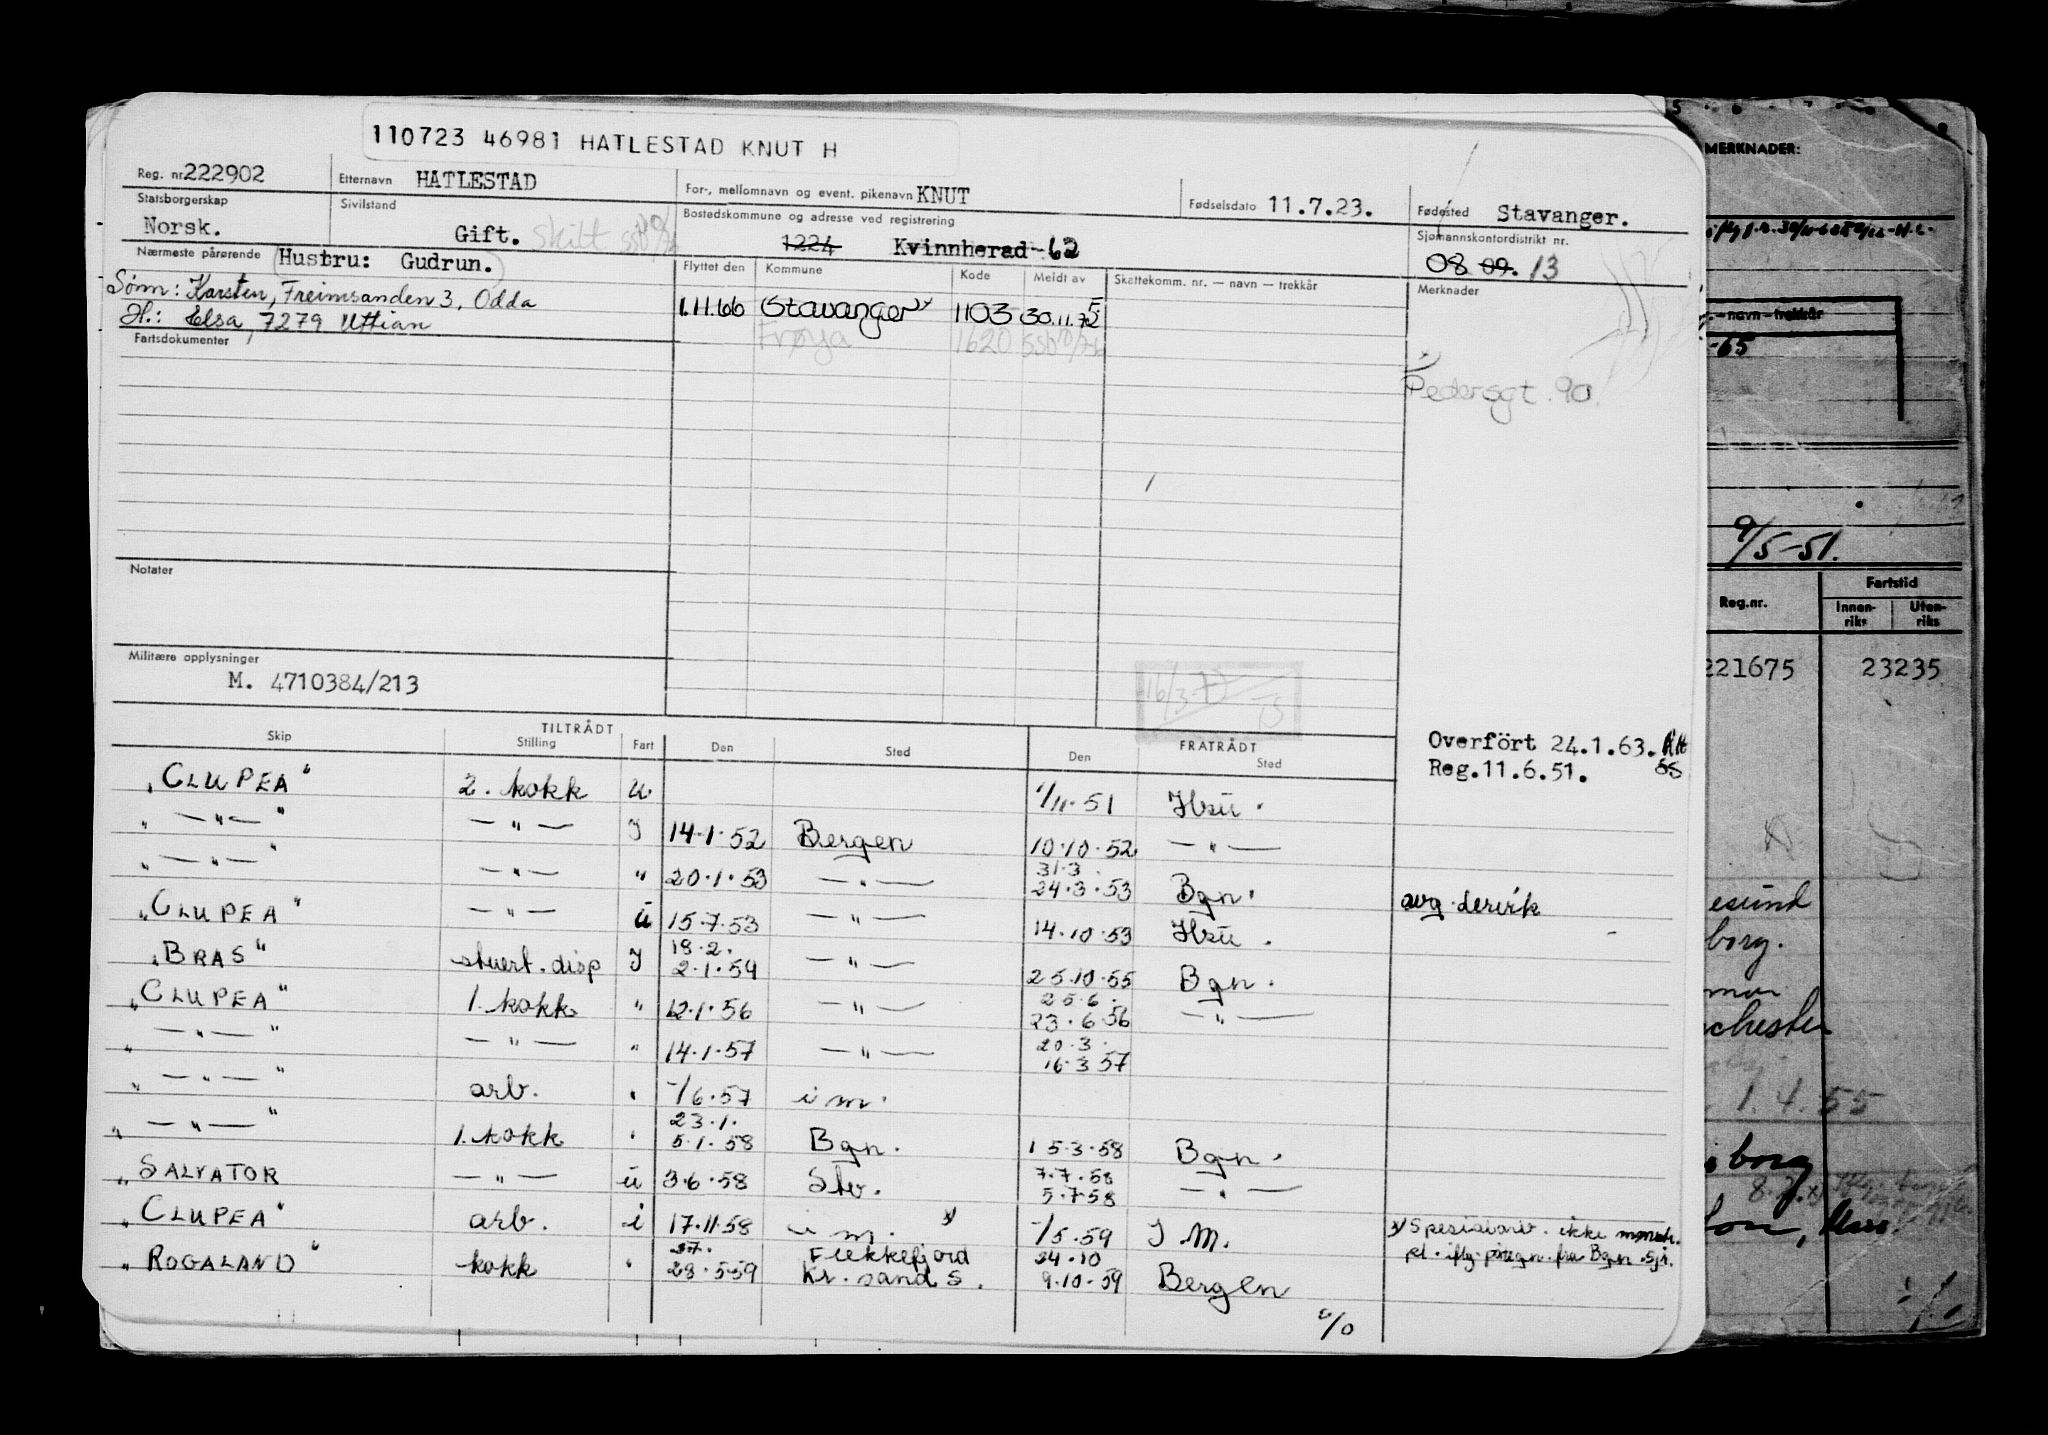 110723 46981 HATLESTAD KNUT H
Reg. nr. 222902 Etternavn HATLESTAD For-, mellomnavn og event. pikenavn KNUT Fødselsdato 11.7.23. Fødested Stavanger.
Statsborgerskap Norsk. Sivilstand Gift. Skilt Bostedskommune og adresse ved registrering 1224 Kvinnherad-62 Sjømannskontordistrikt nr. 08 09. 13
Nærmeste pårørende Hustru: Gudrun. Flyttet den Kommune Kode Meldt av Skattekomm. nr. — navn — trekkår Merknader
Sønn: Karsten, Freimsanden 3, Odda 1.11.66 Stavanger 1103 30.11.72
H.: Elsa, 7279 Uttian Frøya 1620
Fartsdokumenter
Pedersgt. 90.
Notater
Militære opplysninger
M. 4710384/213
16/3-77
Overfört 24.1.63.
Reg.11.6.51.
TILTRÅDT FRATRÅDT
Skip Stilling Fart Den Sted Den Sted
"CLUPEA" 2. kokk u 1/11.51 Hsu.
" — " — " — " — J 14.1.52 Bergen 10.10.52 — " —
" — " — " — " — " 20.1.53 — " — 31.3. 24.3.53 Bgn. avg. dervik
"CLUPEA" — " — u 15.7.53 — " — 14.10.53 Hsu.
"BRAS" stuert. disp J 18.2. 2.1.54 — " — 25.10.55 Bgn.
"CLUPEA" 1. kokk " 12.1.56 — " — 25.6. 23.6.56 — " —
" — " — " — " — " 14.1.57 — " — 20.3. 16.3.57
" — " — " arb. " -/6.57 i m.
" — " — " 1. kokk " 23.1. 5.1.58 Bgn. 15.3.58 Bgn.
"SALVATOR — " — u 3.6.58 Stv. 7.7.58 5.7.58 — " —
"CLUPEA" arb. i 17.11.58 i m. x) -/5.59 J.M. x) Spesialarb. ikke mønstr.
"ROGALAND" kokk " 27. 28.5.59 Flekkefjord Kr.sand S. 24.10 9.10.59 Bergen pl. iflg. påtegn. fra Bgn. Sjr.
%
MERKNADER:
— navn — trekkår
-65
9/5-51.
Reg.nr. Fartstid
Innen-riks Uten-riks
221675 23235
esund
borg.
chester
1.4.55
borg